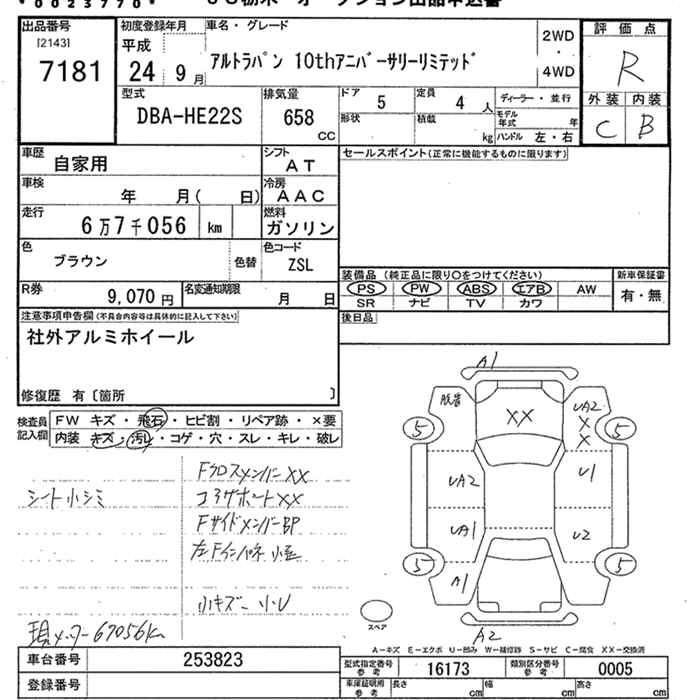 *0023770*
出品番号
[2143]
7181
初度登録年月
平成
24 9月
車名・グレード
アルトラパン 10thアニバーサリーリミテッド
2WD
・
4WD
評価点
R
外装 内装
C B
型式
DBA-HE22S
排気量
658
CC
ドア
5
定員
4人
ディーラー・並行
形状
積載
kg
モデル年式 年
ハンドル 左・右
車歴
自家用
シフト
AT
セールスポイント(正常に機能するものに限ります)
車検
年 月( 日)
冷房
AAC
走行
6万7千056 km
燃料
ガソリン
色
ブラウン
色替
色コード
ZSL
R券
9,070円
名変通知期限
月 日
装備品(純正品に限り○をつけてください)
PS PW ABS エアB AW
SR ナビ TV カワ
新車保証書
有・無
注意事項申告欄(不具合内容等は具体的に記入して下さい)
社外アルミホイール
後日品
修復歴 有〔箇所 〕
検査員記入欄
FW キズ・飛石・ヒビ割・リペア跡・×要
内装 キズ・汚レ・コゲ・穴・スレ・キレ・破レ
シート小シミ
FクロスメンバーXX
コアサポートXX
FサイドメンバーBP
左Fインパネ小歪
小キズ 小U
現メーター67056km
A1
脱着
XX
UA2
X
X
5
5
UA2
U1
UA1
U2
5
5
A1
A2
スペア
A-キズ E-エクボ U-凹み W-補修跡 S-サビ C-腐食 XX-交換済
車台番号
253823
型式指定番号 参考
16173
類別区分番号 参考
0005
登録番号
車庫証明用 参考
長さ cm
幅 cm
高さ cm